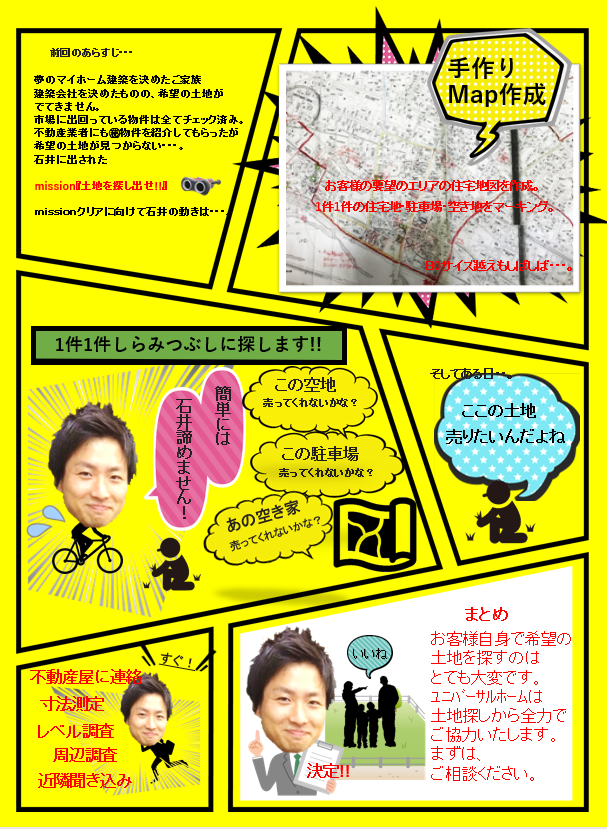 前回のあらすじ・・・
夢のマイホーム建築を決めたご家族
建築会社を決めたものの、希望の土地が
でてきません。
市場に出回っている物件は全てチェック済み。
不動産業者にも㊙物件を紹介してもらったが
希望の土地が見つからない・・・。
石井に出された
mission『土地を探し出せ!!』
missionクリアに向けて石井の動きは・・・。
手作り
Map作成
お客様の要望のエリアの住宅地図を作成。
1件1件の住宅地・駐車場・空き地をマーキング。
サイズ越えもしばしば・・・。
1件1件しらみつぶしに探します!!
簡単には
石井諦めません!
この空地
売ってくれないかな?
この駐車場
売ってくれないかな?
あの空き家
売ってくれないかな?
そしてある日・・。
ここの土地
売りたいんだよね
すぐ!
不動産屋に連絡
寸法測定
レベル調査
周辺調査
近隣聞き込み
いいね
決定!!
まとめ
お客様自身で希望の
土地を探すのは
とても大変です。
ユニバーサルホームは
土地探しから全力で
ご協力いたします。
まずは、
ご相談ください。